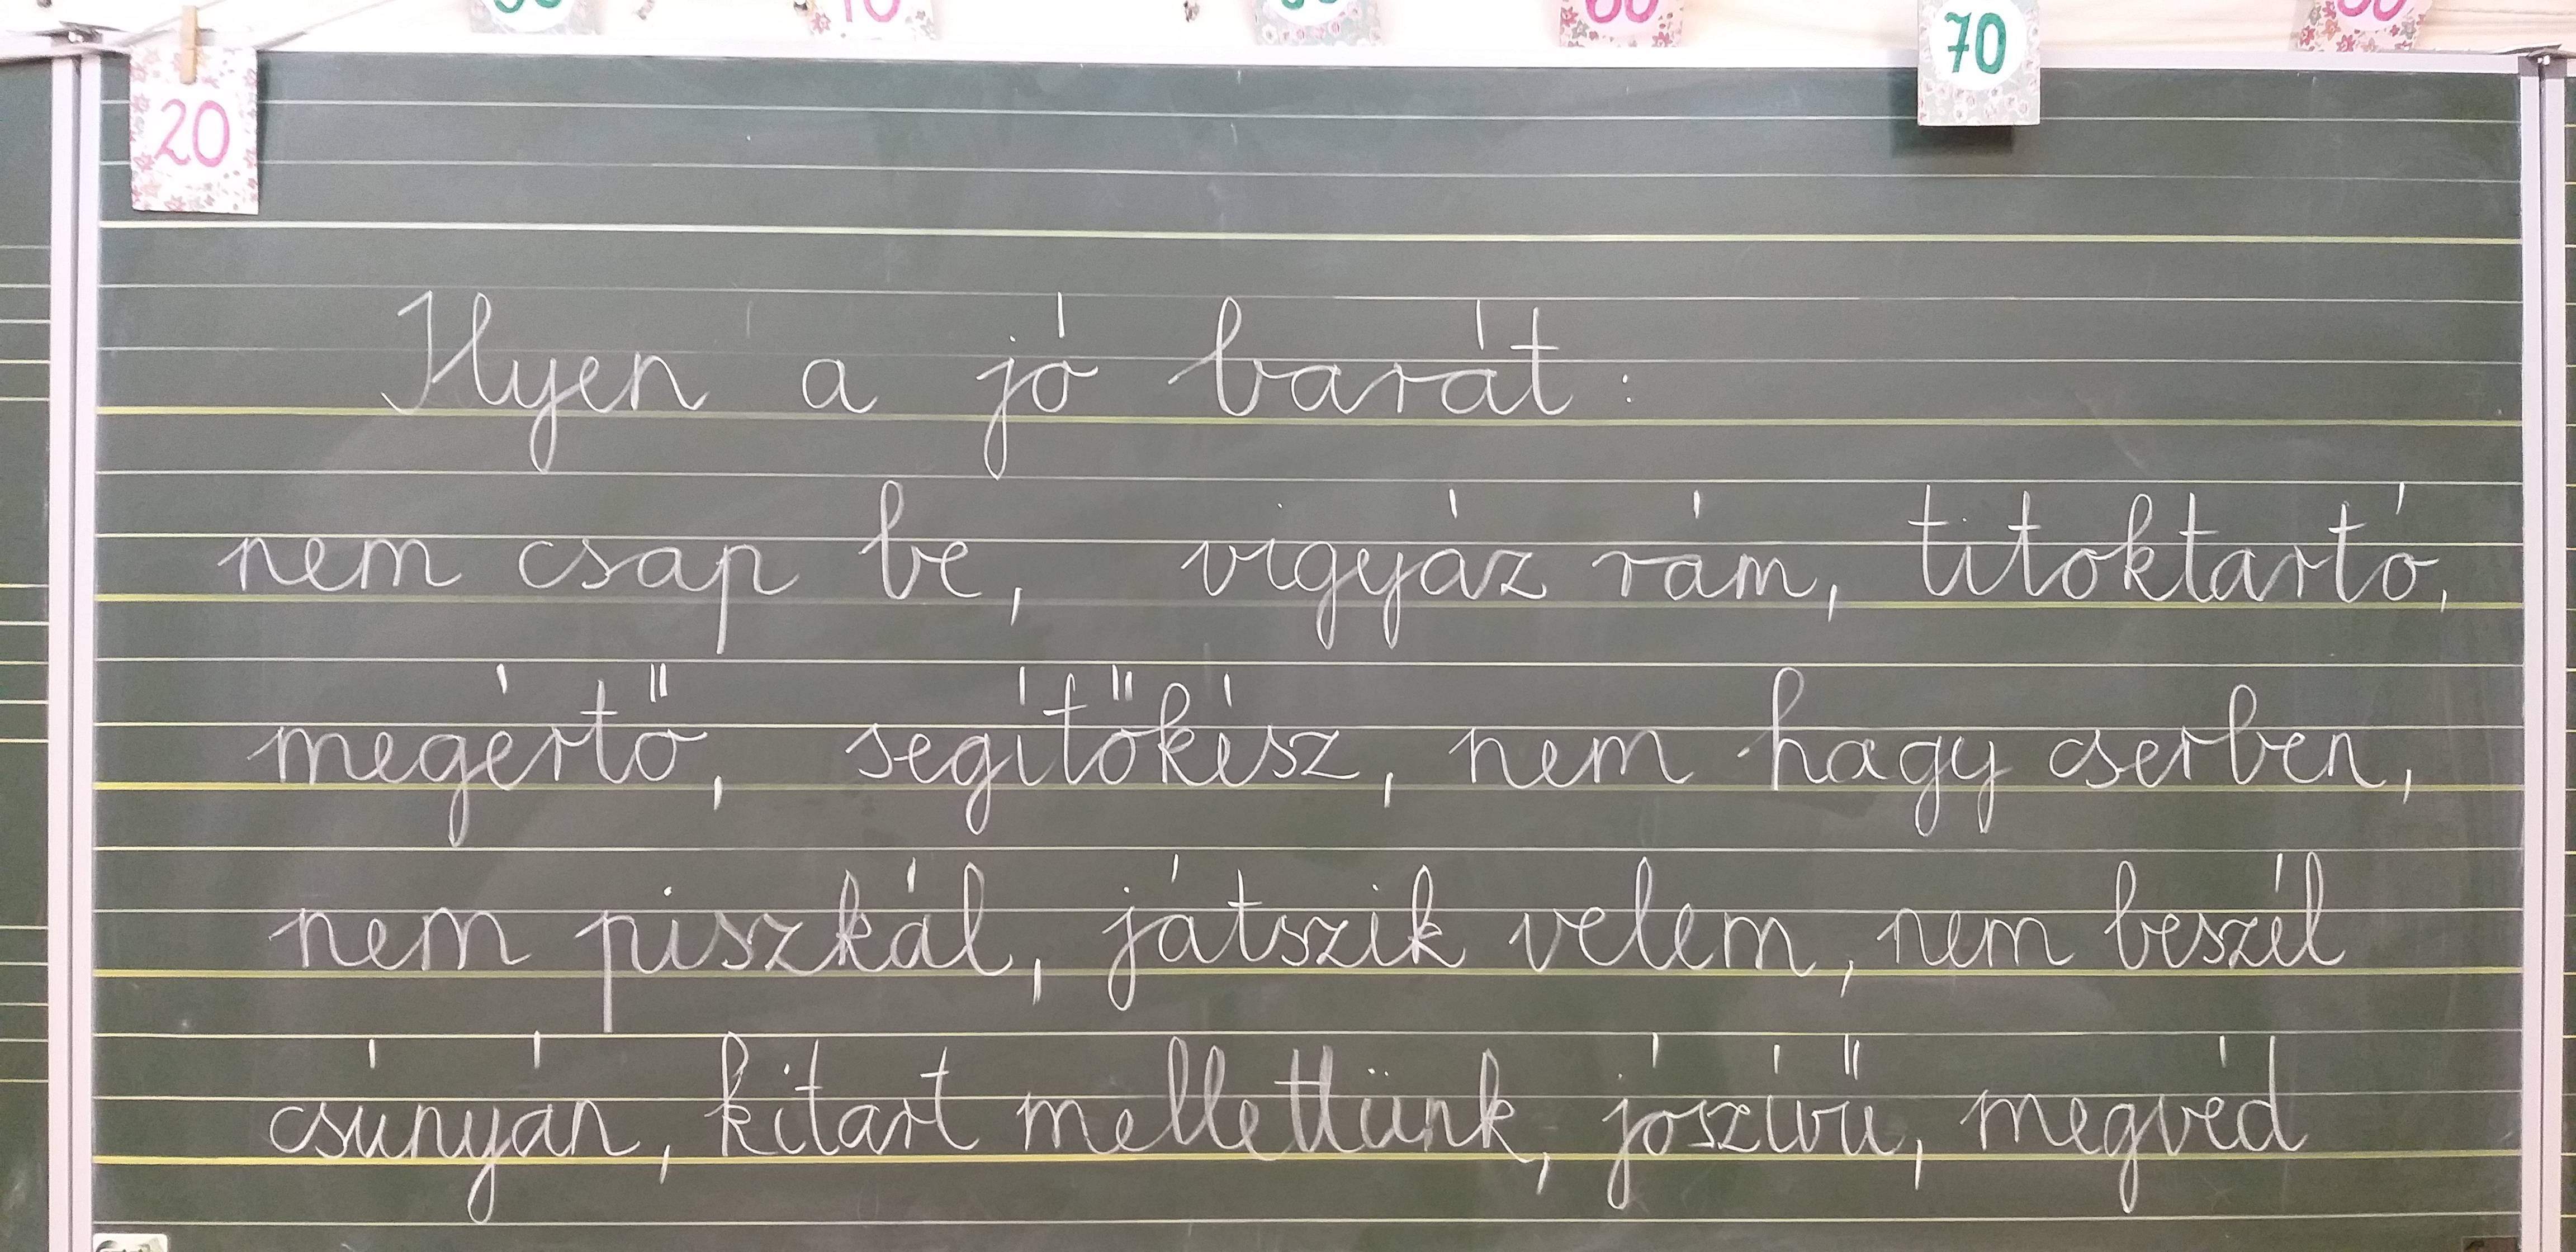 20 70
Ilyen a jó barát:
nem csap be, vigyáz rám, titoktartó,
megértő, segítőkész, nem hagy cserben,
nem piszkál, játszik velem, nem beszél
csúnyán, kitart mellettünk, jószívű, megvéd